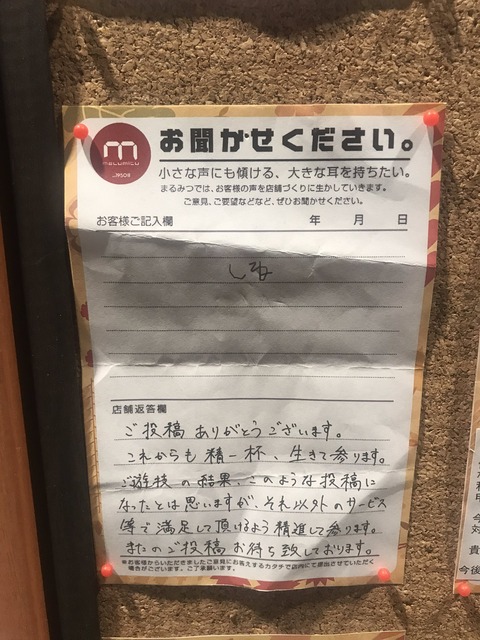 お聞かせください。
小さな声にも傾ける、大きな耳を持ちたい。
まるみつでは、お客様の声を店舗づくりに生かしていきます。
ご意見、ご要望などなど、ぜひお聞かせください。
お客様ご記入欄 年 月 日
しね
店舗返答欄
ご投稿ありがとうございます。
これからも精一杯、生きて参ります。
ご遊技の結果、このような投稿に
なったとは思いますが、それ以外のサービス
等で満足して頂けるよう精進して参ります。
またのご投稿お待ち致しております。
※お客様からいただきましたご意見にお答えするカタチで店内にて提出させていただく
場合がございます。ご了承願います。